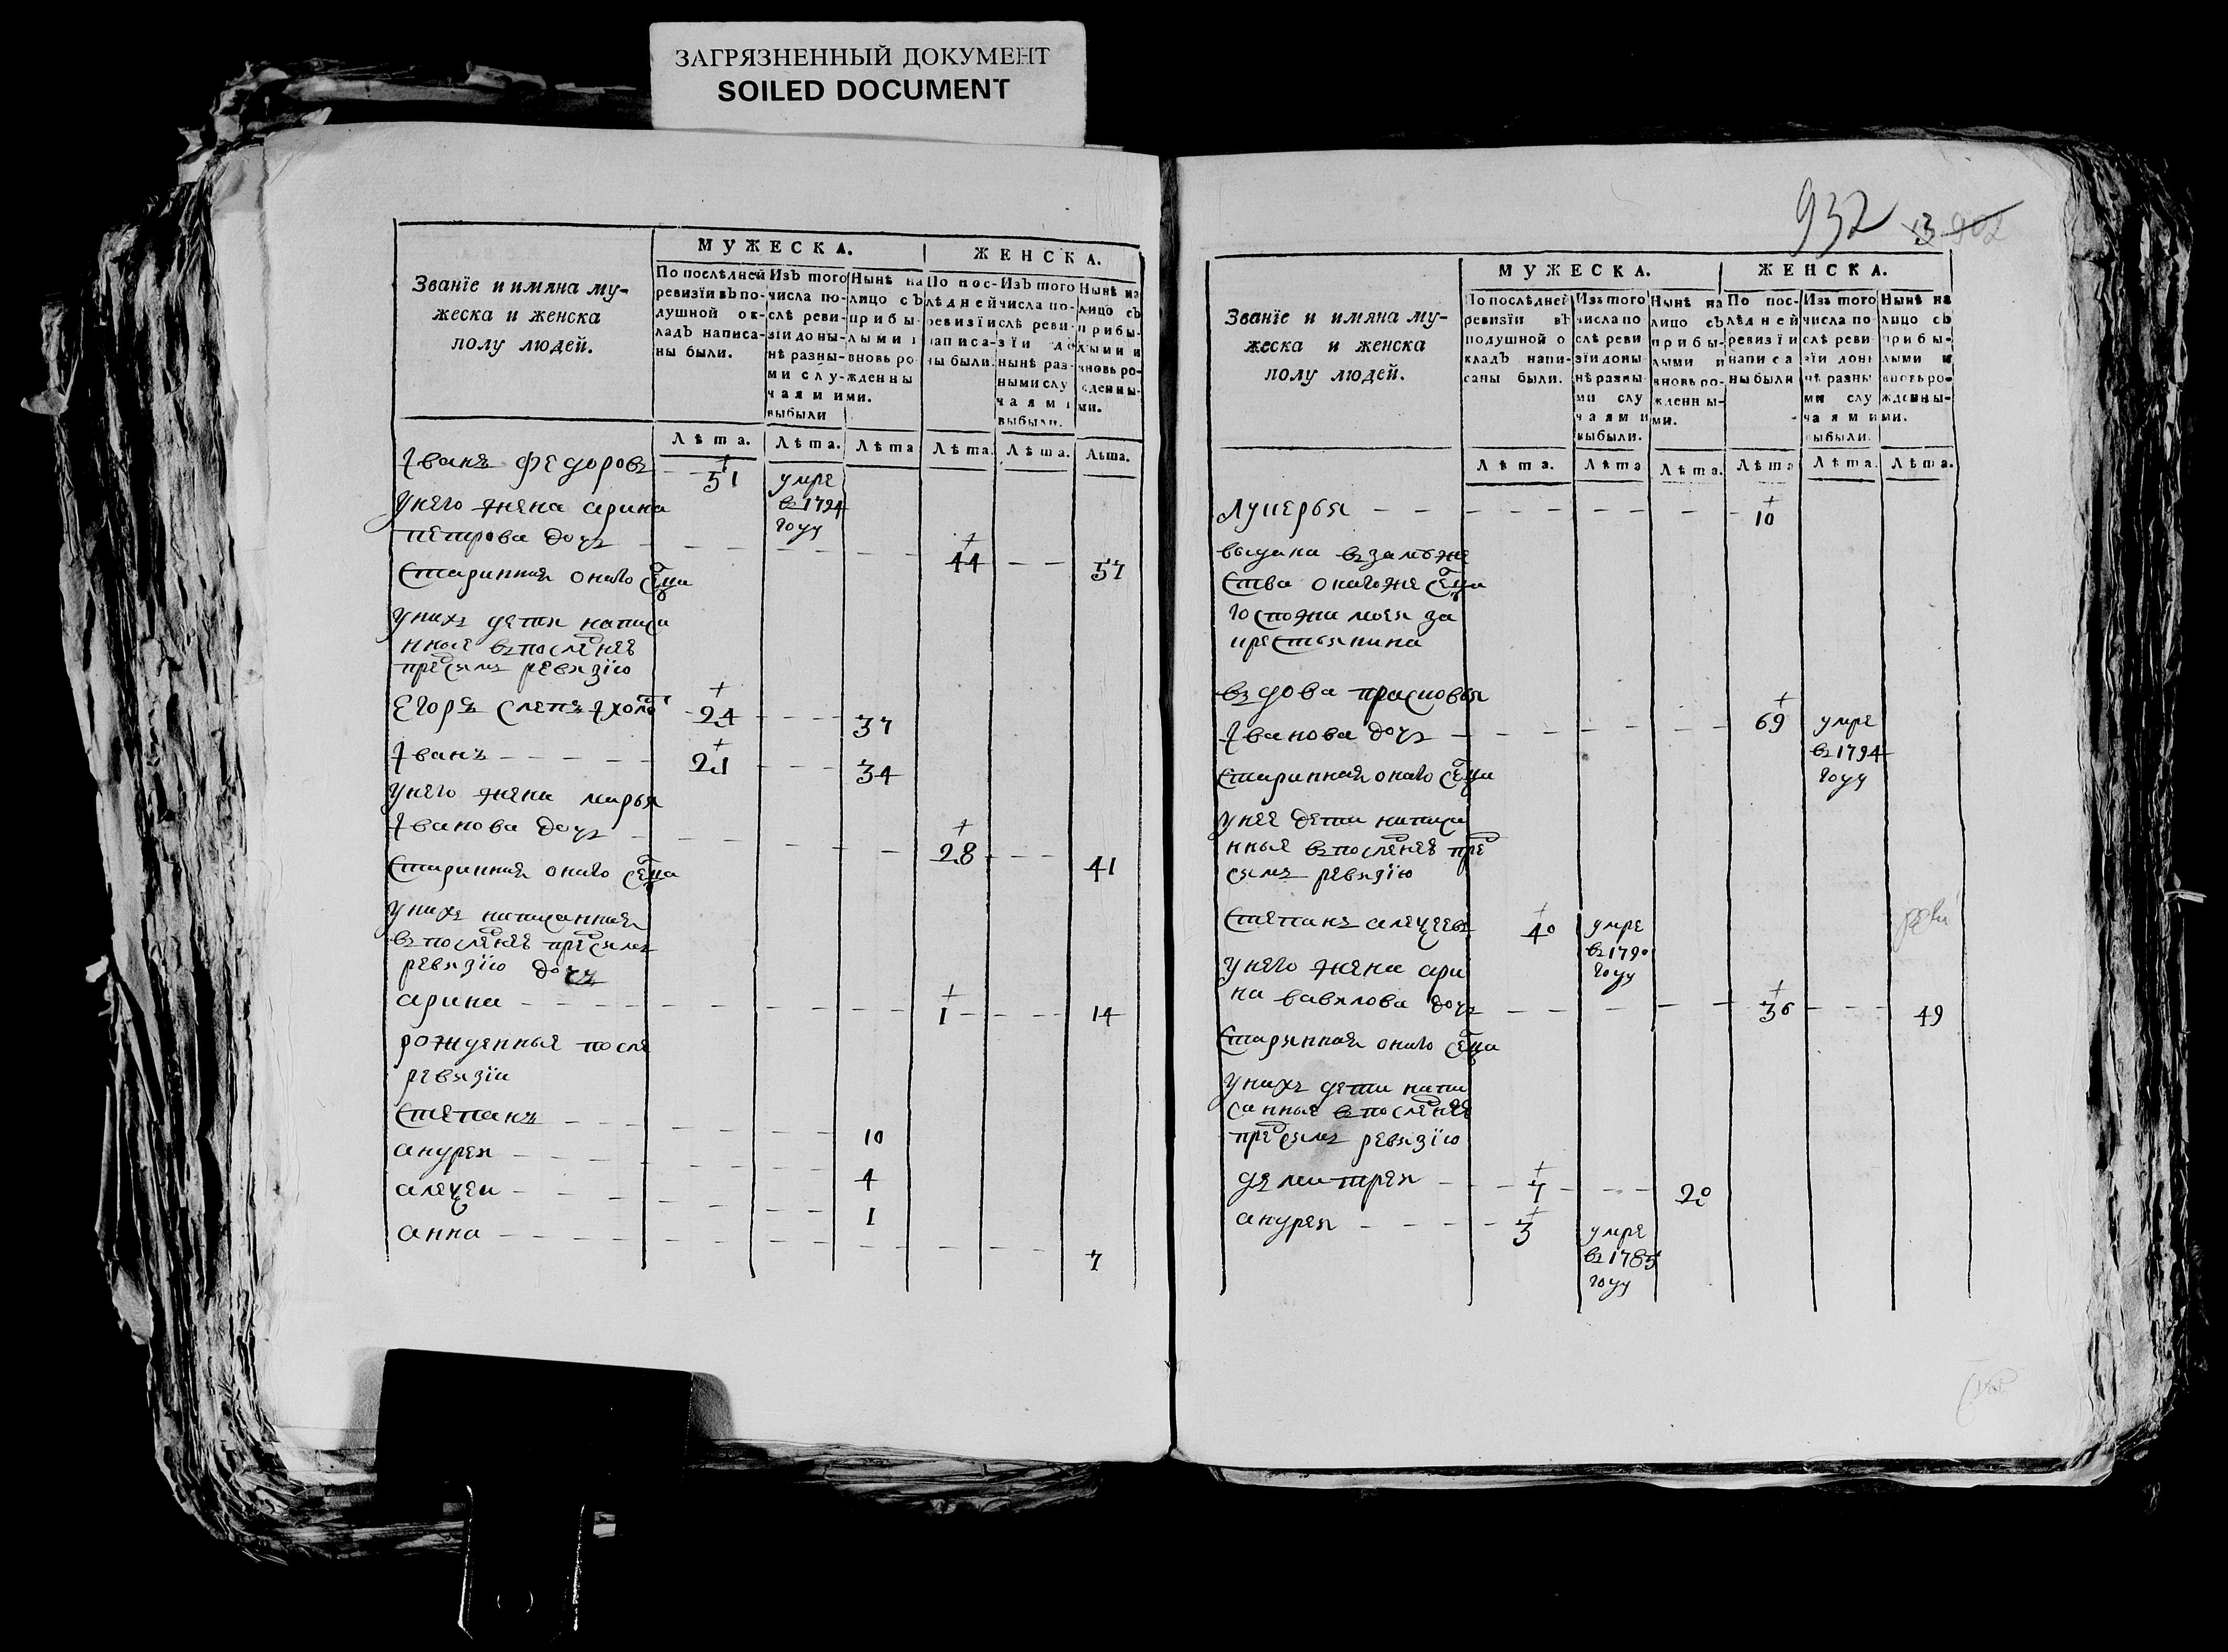 ЗАГРЯЗНЕННЫЙ ДОКУМЕНТ
SOILED DOCUMENT
Званїе и имяна му-
жеска и женска
полу людей.
МУЖЕСКА.
ЖЕНСКА.
По послѣдней
ревизїи въ по-
душной ок-
ладъ написа-
ны были.
Изъ того
числа по-
слѣ реви-
зїи до ны-
нѣ разны-
ми слу-
чаями
выбыли
Нынѣ на
лицо съ
прибы-
лыми и
вновь ро-
жденны
ми.
По пос-
лѣдней
ревизїи
написа-
ны были.
Изъ того
числа по-
слѣ реви-
зїи до
нынѣ раз-
ными слу
чаями
выбыли.
Нынѣ на
лицо съ
прибы-
лыми и
вновь ро-
жденны-
ми.
Лѣта. Лѣта. Лѣта Лѣта. Лѣта. Лѣта.
Иванъ Федоровъ 51 умре
в 1794
году
у него жена арина
петрова дочь 44 57
старинная оного селца
у нихъ дети написа
нные в последнею
пред симъ ревизїю
Егоръ слепъ и холостъ 24 37
Иванъ 21 34
у него жена марья
Иванова дочь 28 41
старинная оного селца
у нихъ написанная
в последнею пред симъ
ревизїю дочь
арина 1 14
рожденные после
ревизїи
Степанъ 10
андрей 4
алексеи 1
анна 7
932
Званїе и имяна му-
жеска и женска
полу людей.
МУЖЕСКА.
ЖЕНСКА.
По послѣдней
ревизїи въ
подушной о
кладъ напи-
саны были.
Изъ того
числа по
слѣ реви
зїи до ны
нѣ разны
ми слу
чаями
выбыли.
Нынѣ на
лицо съ
прибы-
лыми и
вновь ро-
жденны-
ми.
По пос-
лѣдней
ревизїи
написа
ны были
Изъ того
числа по-
слѣ реви
зїи до ны
нѣ разны
ми слу
чаями
выбыли.
Нынѣ на
лицо съ
прибы-
лыми и
вновь ро-
жденны-
ми.
Лѣта. Лѣта Лѣта. Лѣта Лѣта. Лѣта.
Лукерья 10
выдана в замуже
ства оного же селца
госпожи моей за
крестьянина
вдова прасковья
Иванова дочь 69 умре
в 1794
году
старинная оного селца
у нее дети написа
нные в последнею пре
д симъ ревизїю
Степанъ алексеевъ 40 умре
в 1790
году
у него жена ари
на вавилова дочь 36 49
старинная оного селца
у нихъ дети напи
санные в последнею
пред симъ ревизїю
демитрей 7 20
андрей 3 умре
в 1785
году